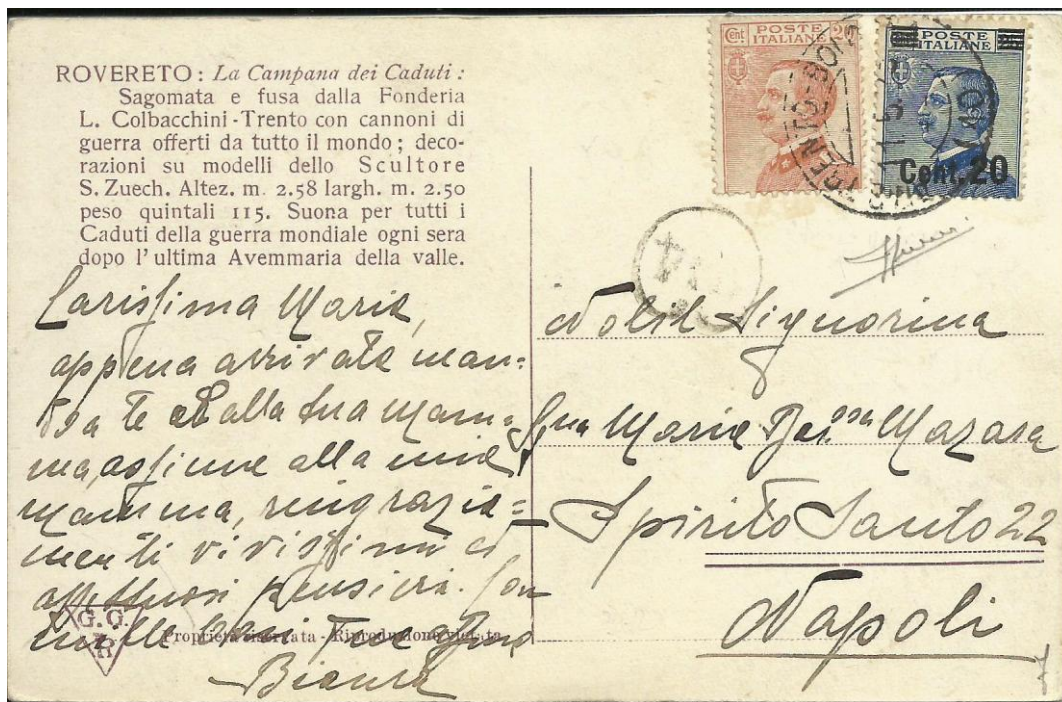 ROVERETO: La Campana dei Caduti:
Sagomata e fusa dalla Fonderia
L. Colbacchini-Trento con cannoni di
guerra offerti da tutto il mondo; deco-
razioni su modelli dello Scultore
S. Zuech. Altez. m. 2.58 largh. m. 2.50
peso quintali 115. Suona per tutti i
Caduti della guerra mondiale ogni sera
dopo l'ultima Avemmaria della valle.
Carissima Maria,
appena arrivata man=
do a te ed alla tua mam=
ma, assieme alla mia
mamma, ringrazia=
menti vivissimi ed
affettuosi pensieri. Con
mille baci Tua aff.ma
Bianca
G.G.
R
Proprietà riservata - Riproduzione vietata
Cent POSTE 20
ITALIANE
POSTE
ITALIANE
Cent. 20
TRENTO-BO
Nobil Signorina
Maria Mazara
Spirito Santo 22
Napoli